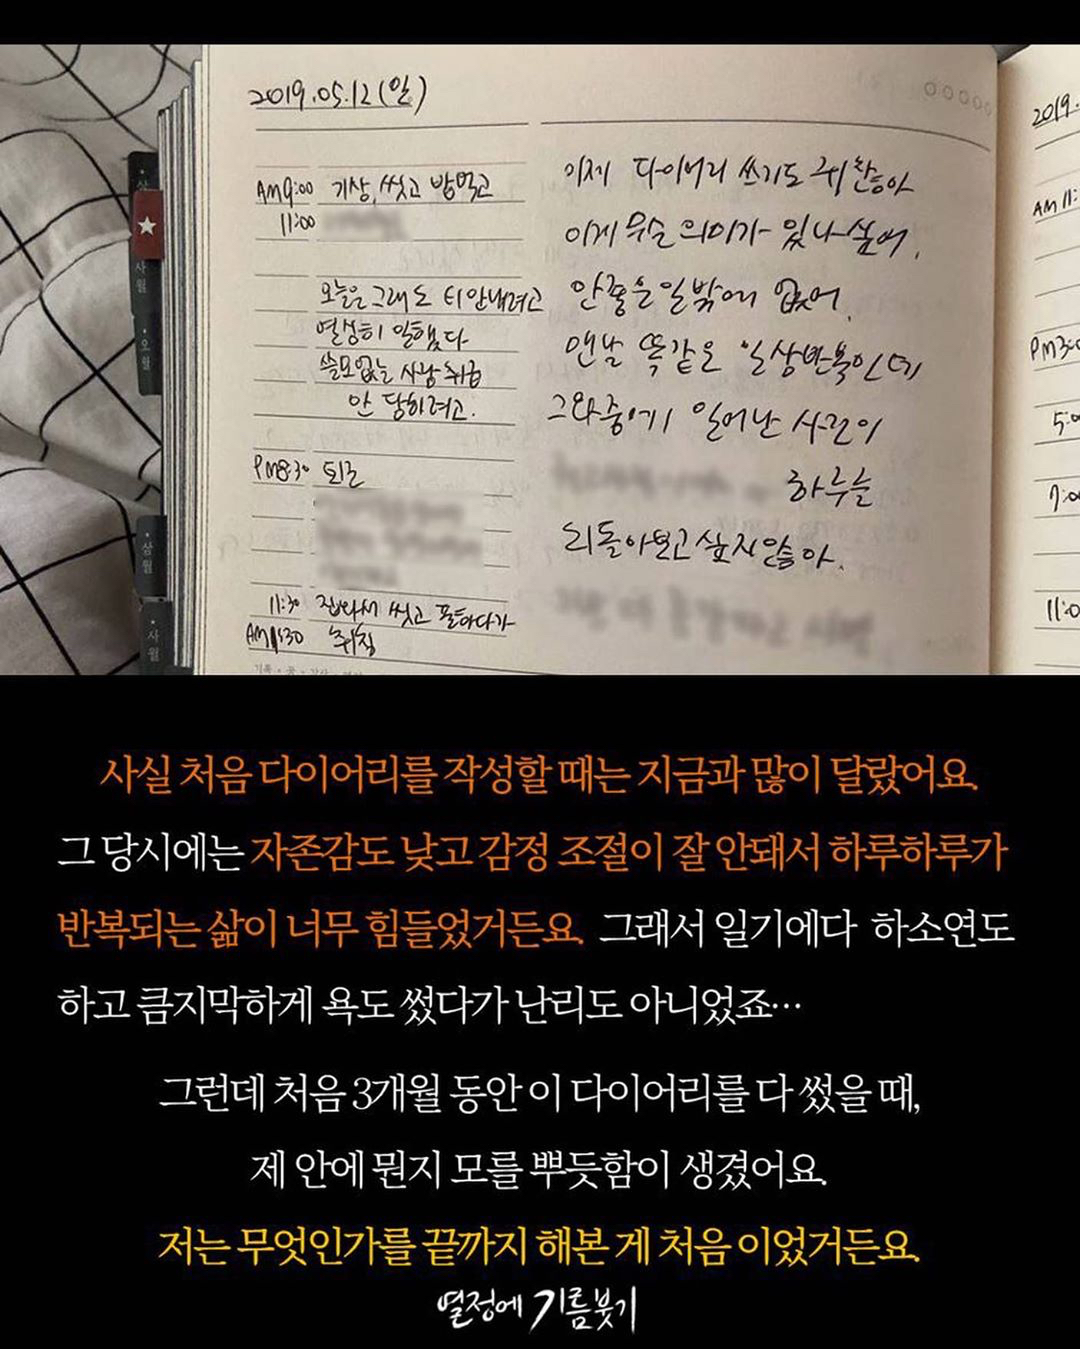 2019.05.12(일)
AM9:00 기상, 씻고 밥먹고
11:00
오늘은 그래도 티안내려고
열심히 일했다
쓸모없는 사람 취급
안 당하려고.
PM8:30 퇴근
11:30 집와서 씻고 폰하다가
취침
이제 다이어리 쓰기도 귀찮아
이게 무슨 의미가 있나 싶어.
안좋은일 밖에 없어.
맨날 똑같은 일상반복인데
그와중에 일어난 사건이
하루를
되돌아보고 싶지않아.
2019.
AM 11:
PM3:
5:0
7:0
11:0
사월
오월
삼월
사월
사실 처음 다이어리를 작성할 때는 지금과 많이 달랐어요.
그 당시에는 자존감도 낮고 감정 조절이 잘 안돼서 하루하루가
반복되는 삶이 너무 힘들었거든요. 그래서 일기에다 하소연도
하고 큼지막하게 욕도 썼다가 난리도 아니었죠…
그런데 처음 3개월 동안 이 다이어리를 다 썼을 때,
제 안에 뭔지 모를 뿌듯함이 생겼어요.
저는 무엇인가를 끝까지 해본 게 처음 이었거든요.
열정에 기름붓기